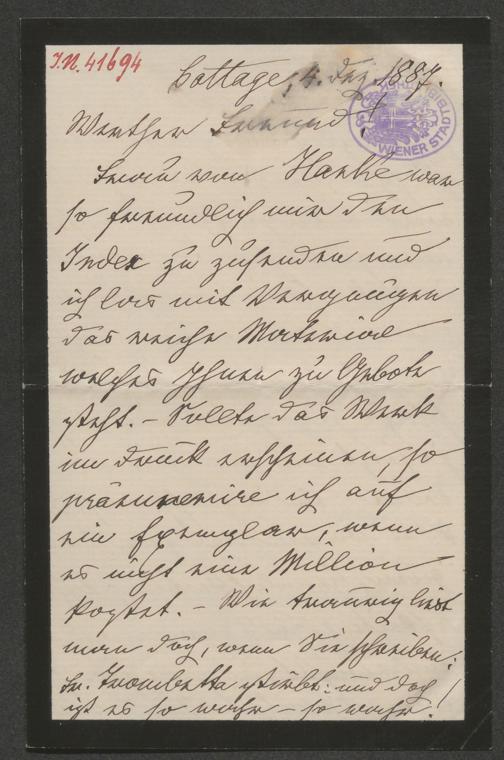 I.N. 41694
Cottage, 4. Dez. 1887.
WIENER STADT
Werther Freund!
Frau von Hanke war
so freundlich mir den
Index zu zusenden und
ich las mit Vergnügen
das reiche Material
welches Ihnen zu Gebote
steht. – Sollte das Werk
im Druck erscheinen, so
pränumerire ich auf
ein Exemplar, wenn
es nicht eine Million
kostet. – Wie traurig liest
man doch, wenn Sie schreiben:
Fr. Trombetta stirbt: und doch
ist es so wahr – so wahr!